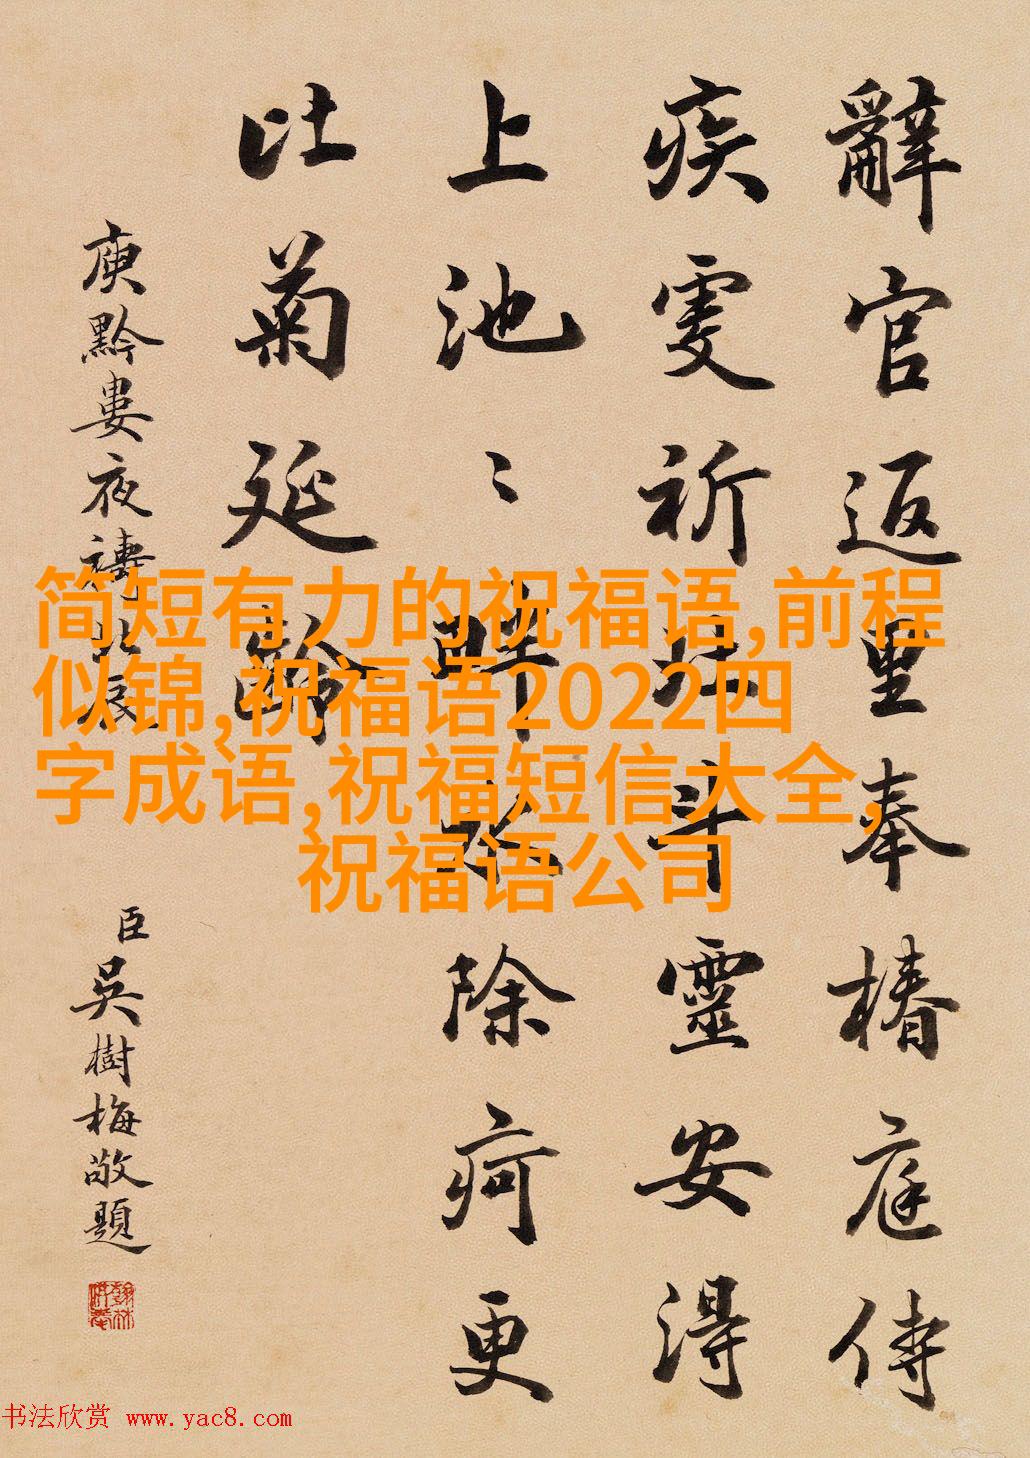 辭官返里奉椿庭侍
疾虔祈北斗靈安得
上池〻畔水除疴更
比菊延齡
庾黔婁夜禱北辰
臣吳樹梅敬題
简短有力的祝福语,前程
似锦,祝福语2022四
字成语,祝福短信大全,
祝福语公司
书法欣赏 www.yac8.com